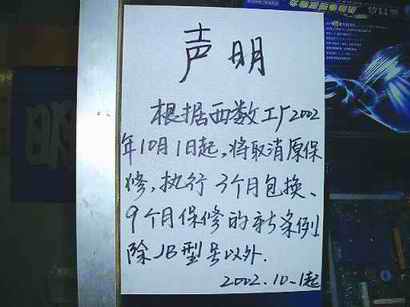 声明
根据西数工厂2002
年10月1日起,将取消原保
修,执行3个月包换、
9个月保修的新条例
除JB型号以外.
2002.10.1起